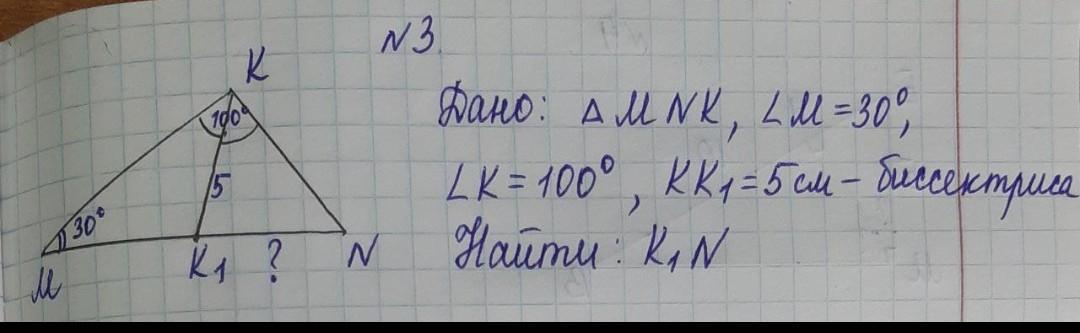 N3
K
100°
5
30°
M
K₁
?
N
Дано: △MNK, ∠M=30°,
∠K=100°, KK₁=5см – биссектриса
Найти: K₁N